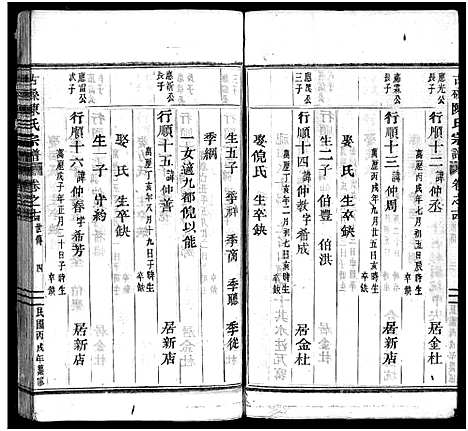 應光公長子
行順十二 諱仲丞 居金杜
萬曆丙戌年七月初五日辰時生 卒缺
應霖公長子
行順十三 諱仲周
萬曆丙戌年九月廿五日亥時生 卒缺
娶 氏 生卒缺
生二子 伯豊 伯洪
應民公三子
行順十四 諱仲教 字希成 居金杜
萬曆丁亥年二月初七日亥時生 卒缺
娶倪氏 生卒缺
生五子 季祥 季商 季聽 季從
季綱
一女適九都倪以能
應富公長子
行順十五 諱仲善 居新店
萬曆丁亥年八月十九日子時生 卒缺
娶 氏 生卒缺
生一子 守約
應雷公次子
行順十六 諱仲春 字希芳 居新店
萬曆戊子年正月二十日子時生 卒缺
陳氏宗譜 卷之十四 世傳 四 民國丙戌年纂修